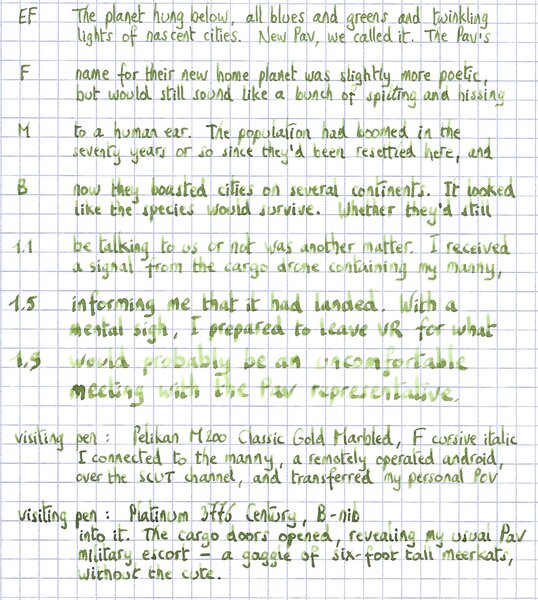 EF The planet hung below, all blues and greens and twinkling
lights of nascent cities. New Pav, we called it. The Pav's
F name for their new home planet was slightly more poetic,
but would still sound like a bunch of spitting and hissing
M to a human ear. The population had boomed in the
seventy years or so since they'd been resettled here, and
B now they boasted cities on several continents. It looked
like the species would survive. Whether they'd still
1.1 be talking to us or not was another matter. I received
a signal from the cargo drone containing my manny,
1.5 informing me that it had landed. With a
mental sigh, I prepared to leave VR for what
1.9 would probably be an uncomfortable
meeting with the Pav representative.
visiting pen : Pelikan M200 Classic Gold Marbled, F cursive italic
I connected to the manny, a remotely operated android,
over the SCUT channel, and transferred my personal POV
visiting pen : Platinum 3776 Century, B-nib
into it. The cargo doors opened, revealing my usual Pav
military escort – a gaggle of six-foot tall meerkats,
without the cute.